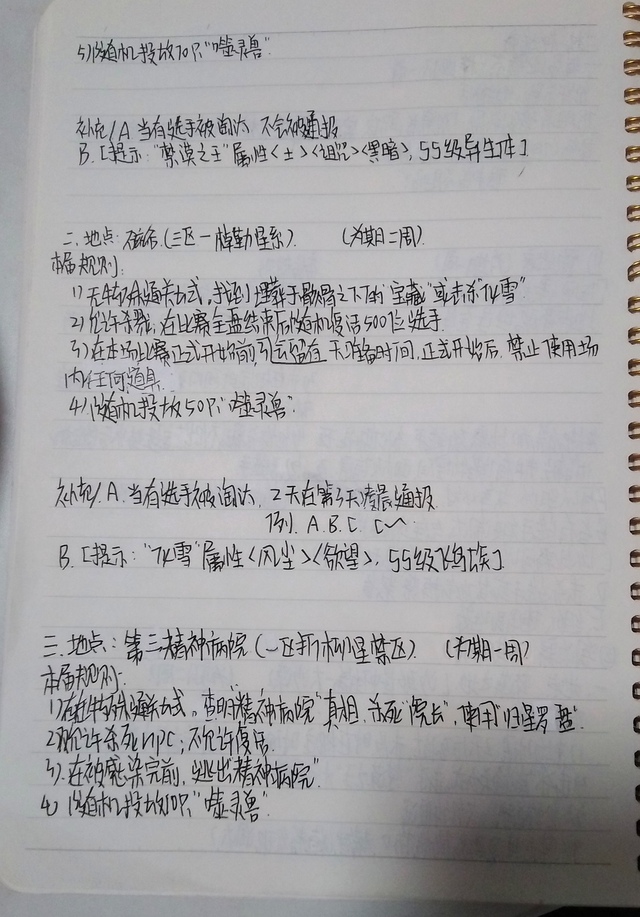 5)将随机投放70只"噬灵兽".
补充/A.当有选手被淘汰,不会被通报
B.[提示:"禁漠之王"属性<土><诅咒><黑暗>,55级异生体]
二.地点:(三区一掉勒星系). (为期二周).
本届规则:
1)无特殊通关方式,找到埋葬于骸骨之下的"宝藏"或击杀"化雪"
2)允许杀戮,在比赛全盘结束后随机复活500位选手.
3)在本场比赛正式开始前,会留有一天准备时间,正式开始后,禁止使用场
内任何道具.
4)将随机投放50只"噬灵兽".
补充/.A.当有选手被淘汰,2天在第3天凌晨通报
例.A.B.C.C~
B.[提示:"化雪"属性<风尘><欲望>,55级飞鸟族].
三.地点:第三精神病院(一区折机星禁区). (为期一周)
本届规则:
1)有特殊通关方式,查明"精神病院"真相,杀死"院长",使用"归星罗盘".
2)允许杀死NPC;不允许复活.
3).在被感染完前,逃出"精神病院"
4).将随机投放10只"噬灵兽".